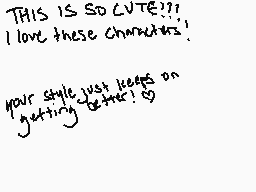 THIS IS SO CUTE!!!
I love these characters!
your style just keeps on
getting better! ♡